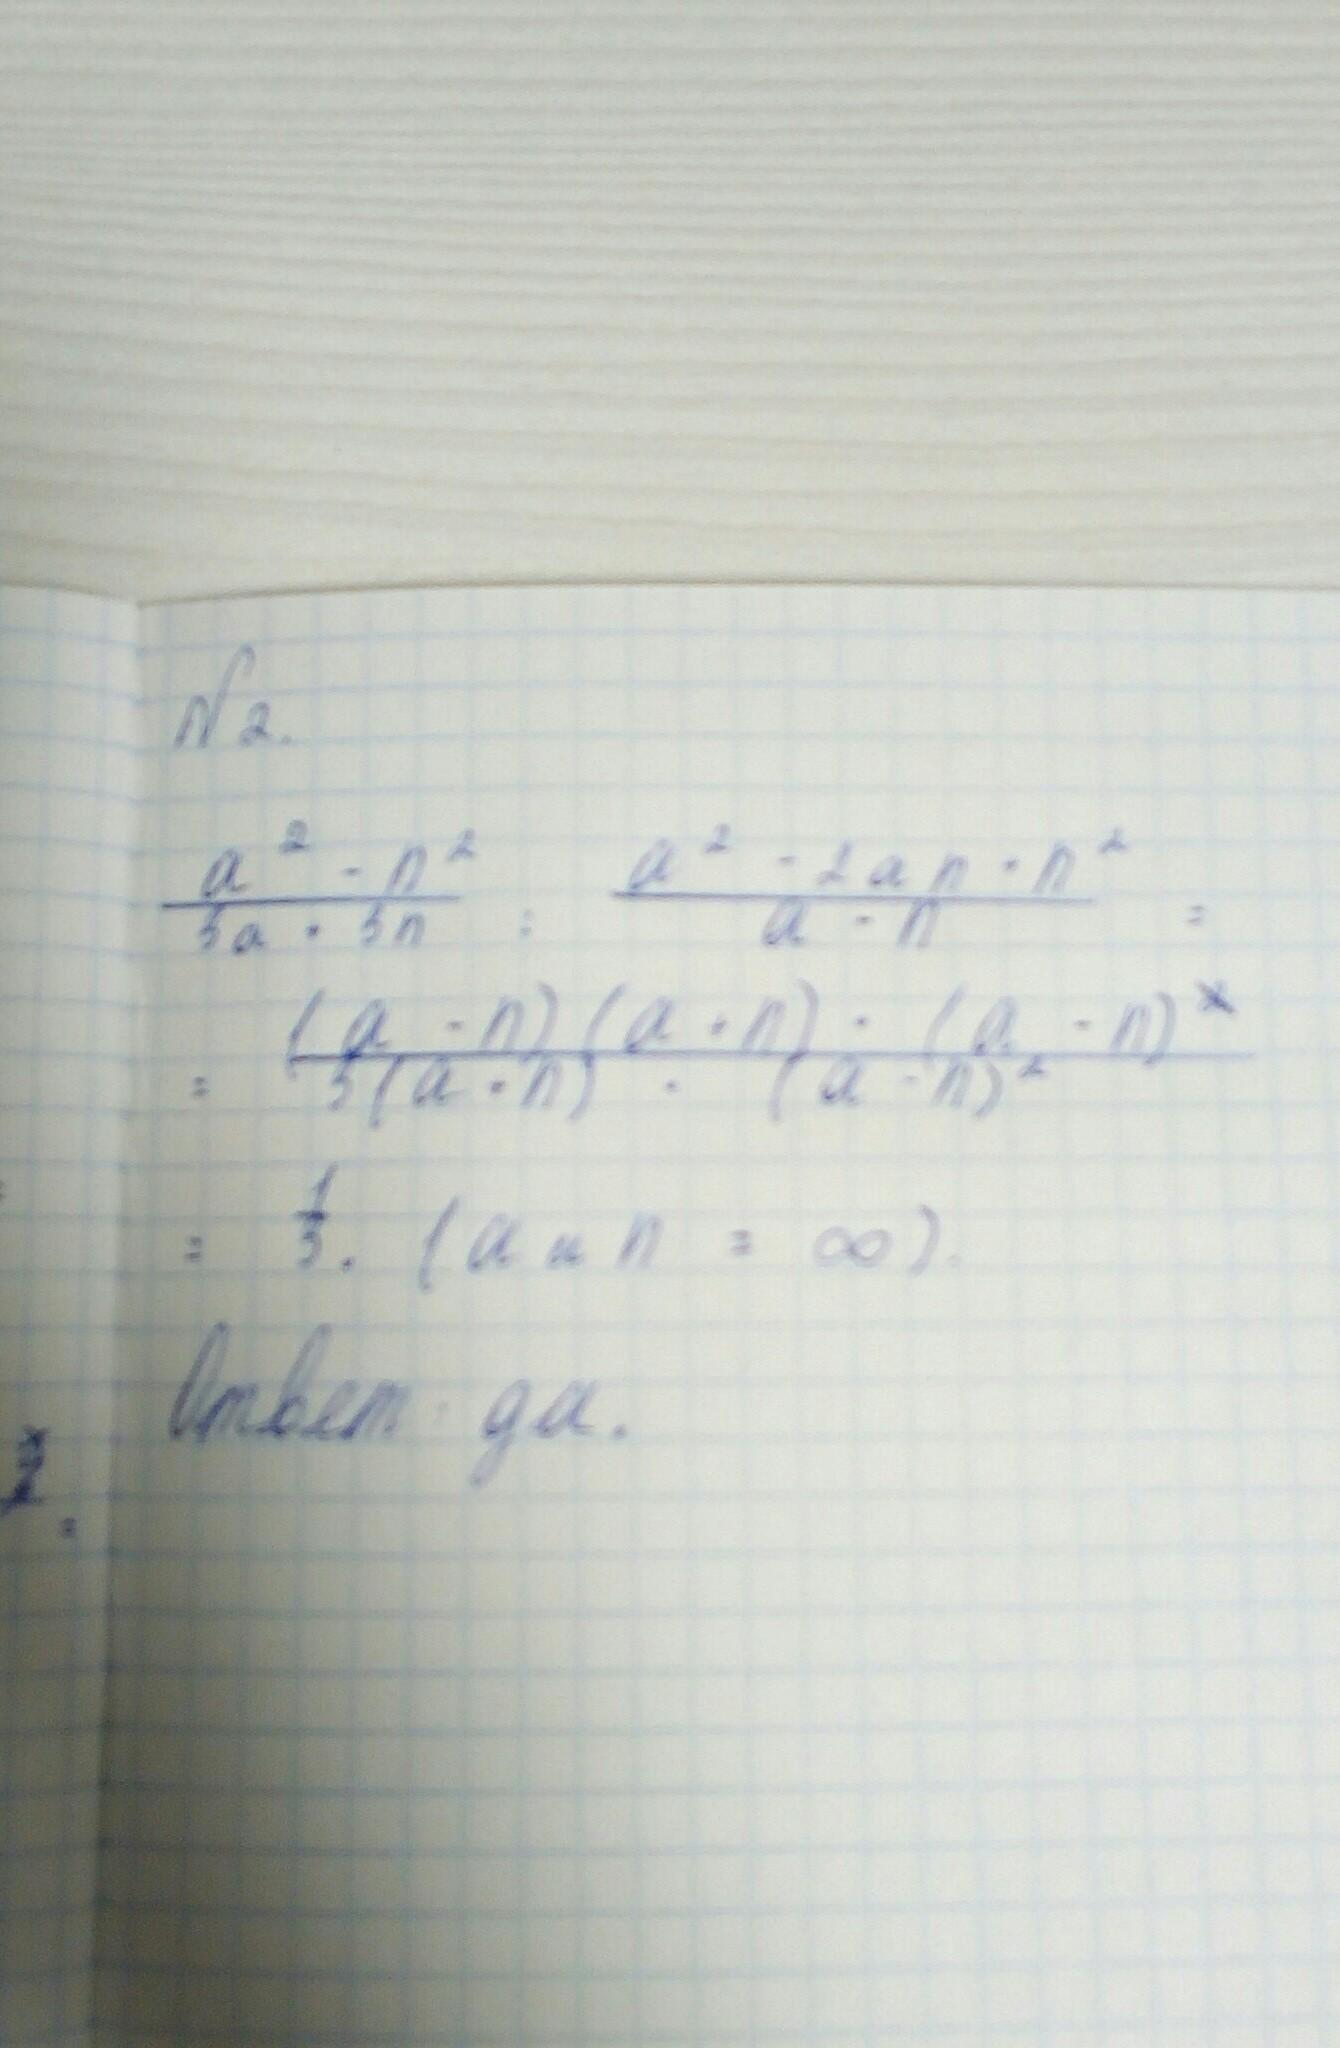 N2.
a² - n² / 3a + 3n : a² - 2an + n² / a - n =
= (a - n)(a + n) · (a - n) / 3(a + n) · (a - n)²
= 1/3. (a и n = ∞).
Ответ: да.